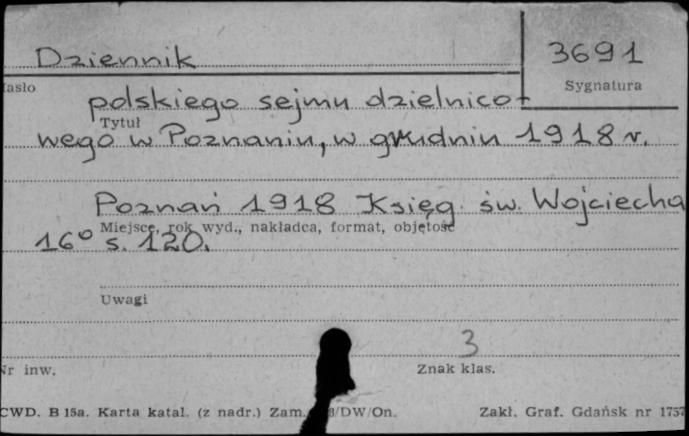 Dziennik 3691
asło Sygnatura
polskiego sejmu dzielnico-
Tytuł
wego w Poznaniu, w grudniu 1918 r.
Poznań 1918 Księg. św. Wojciecha
Miejsce, rok wyd., nakładca, format, objętość
16° s. 120.
Uwagi
3
Nr inw. Znak klas.
CWD. B 15a. Karta katal. (z nadr.) Zam. /DW/On. Zakł. Graf. Gdańsk nr 1757